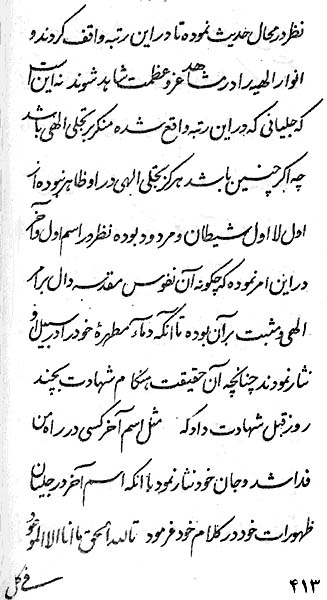 نظر در محال حدیث نموده تا در این رتبه واقف گردند و
انوار الهیه را در مشاهد عز و عظمت شاهد شوند نه این است
که جلیانی که در این رتبه واقع شده منکر بر تجلی الهی باشد
چه اگر چنین باشد هرگز تجلی الهی در او ظاهر نبوده از
اول لا اول شیطان و مردود بوده نظر در اسم اول و آخر
در این امر نموده که چگونه آن نفوس مقدسه دال بر امر
الهی و مثبت بر آن بوده تا آنکه دماء مطهرهٔ خود را در سبیل او
نثار نمودند چنانچه آن حقیقت هنگام شهادت بچند
روز قبل شهادت داد که مثل اسم آخر کسی در راه من
فدا نشد و جان خود نثار ننمود با آنکه اسم آخر در
ظهورات خود در کلام خود فرمود تالله الحق ما انا الا
فی کل
۴۱۳